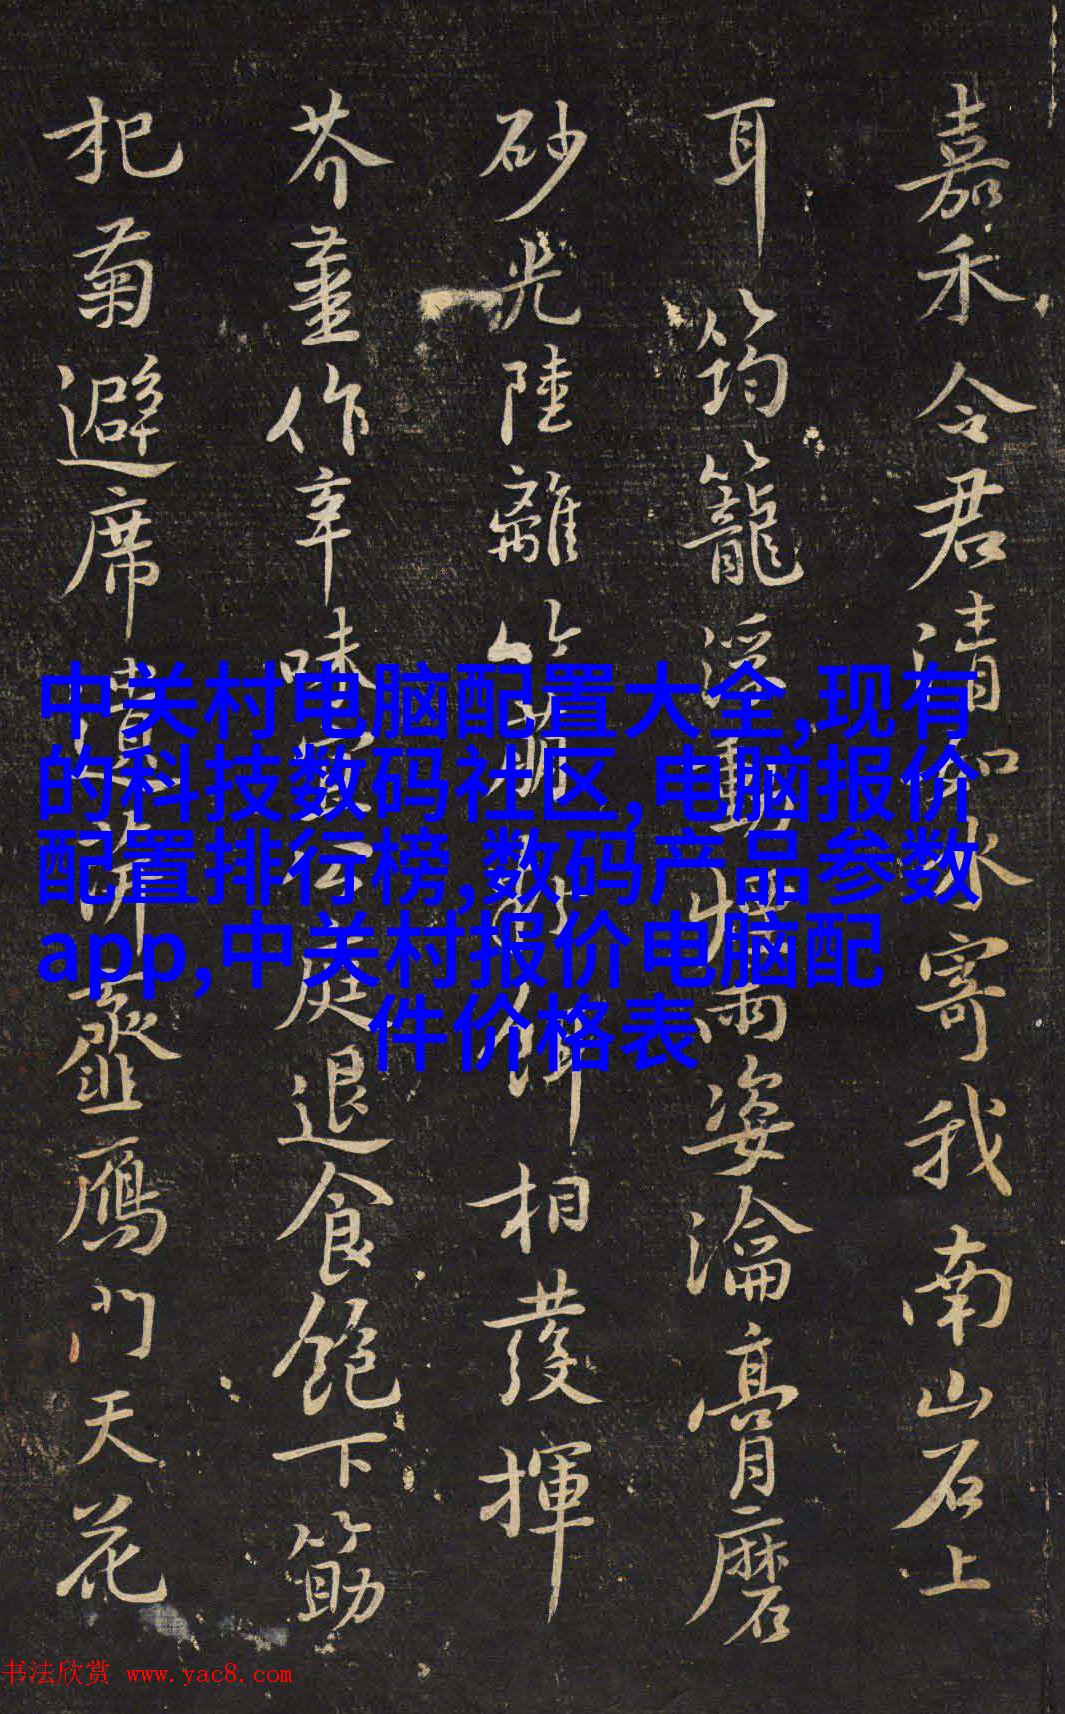 嘉禾令君清如水寄我南山石上
耳筠籠浮動雨姿瀹膏磨
砂光陸離餌相發揮
芥薑作辛味宜公庭退食飽下筯
杞菊避席遺萍虀鴈門天花
中关村电脑配置大全,现有
的科技数码社区,电脑报价
配置排行榜,数码产品参数
app,中关村报价电脑配
件价格表
书法欣赏 www.yac8.com